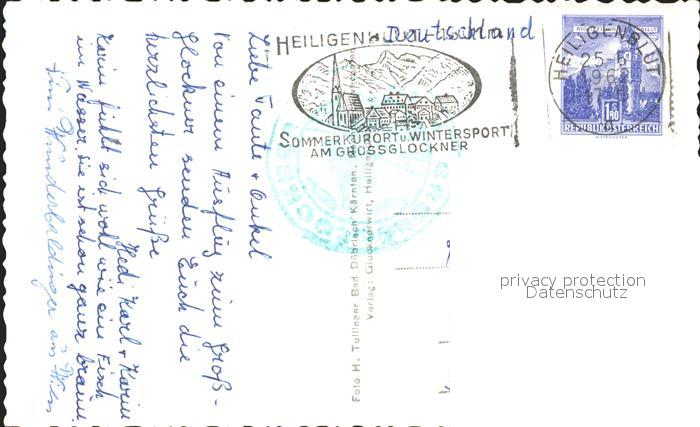 Liebe Tante + Onkel
Von einem Ausflug zum Groß-
glockner senden Euch die
herzlichsten Grüße
Hedi Karl + Karin
Karin fühlt sich wohl wie ein Fisch
im Wasser, sie ist schon ganz braun.
aus Wien
Deutschland
HEILIGEN
SOMMERKURORT u. WINTERSPORT
AM GROSSGLOCKNER
HEILIGENBLUT
25-
196
1.80
REPUBLIK ÖSTERREICH
Foto H. Tollinger Bad Döbriach Kärnten.
Verlag: Glocknerwirt, Heilige
privacy protection
Datenschutz